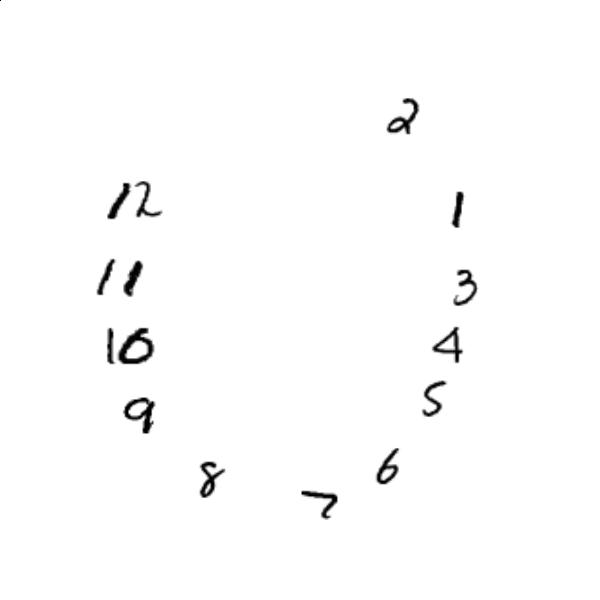 2
12 1
11 3
10 4
9 5
8 6
7